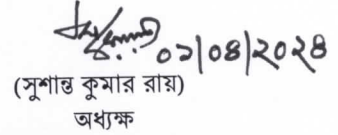 ০১/০৪/২০২৪
(সুশান্ত কুমার রায়)
অধ্যক্ষ